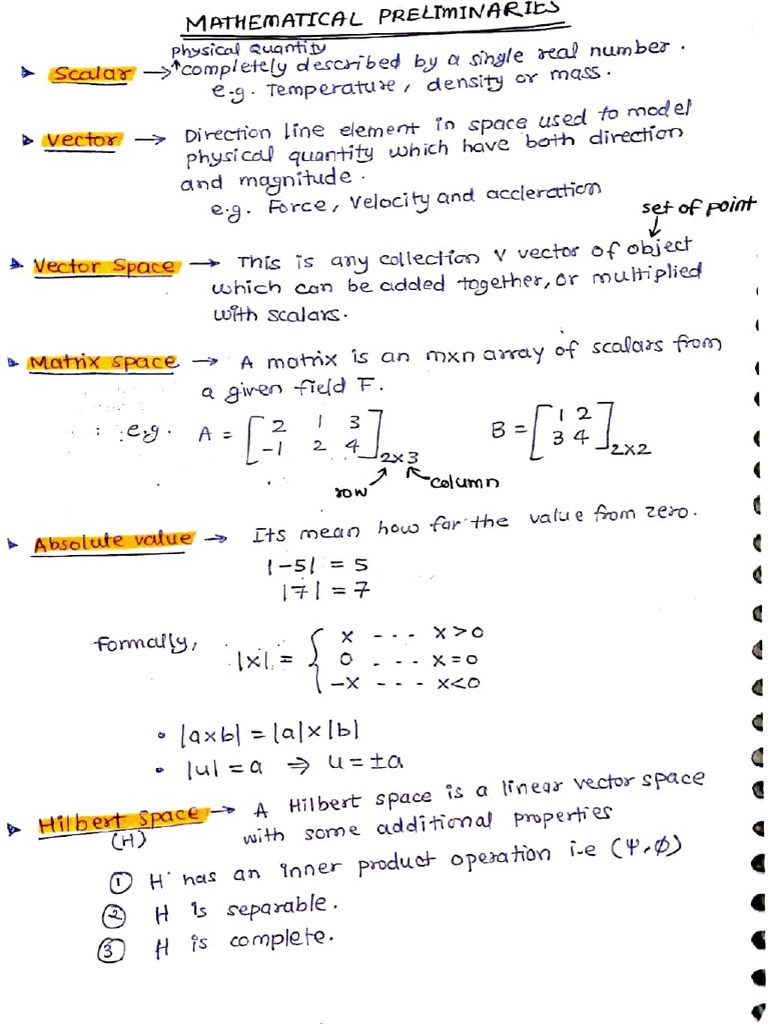 MATHEMATICAL PRELIMINARIES
physical Quantity
Scalar → completely described by a single real number.
e.g. Temperature, density or mass.
Vector → Direction line element in space used to model
physical quantity which have both direction
and magnitude.
e.g. Force, Velocity and accleration
set of point
Vector Space → This is any collection v vector of object
which can be added together, or multiplied
with scalars.
Matrix space → A matrix is an mxn array of scalars from
a given field F.
e.g. A = [2 1 3; -1 2 4]2x3 B = [1 2; 3 4]2x2
row column
Absolute value → Its mean how far the value from zero.
|-5| = 5
|7| = 7
Formally, |x| = { x --- x>0
0 --- x=0
-x --- x<0
• |axb| = |a|x|b|
• |u| = a ⇒ u = ±a
Hilbert space → A Hilbert space is a linear vector space
(H) with some additional properties
① H has an inner product operation i.e (Ψ,φ)
② H is separable.
③ H is complete.